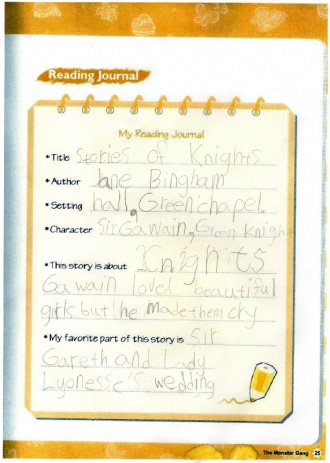 Reading Journal
My Reading Journal
• Title Stories of Knights
• Author Jane Bingham
• Setting hall, Green chapel.
• Character Sir Gawain, Green Knight
• This story is about Knights
Gawain loved beautiful
girls but he made them cry
• My favorite part of this story is Sir
Gareth and Lady
Lyonesse's wedding
The Monster Gang 25